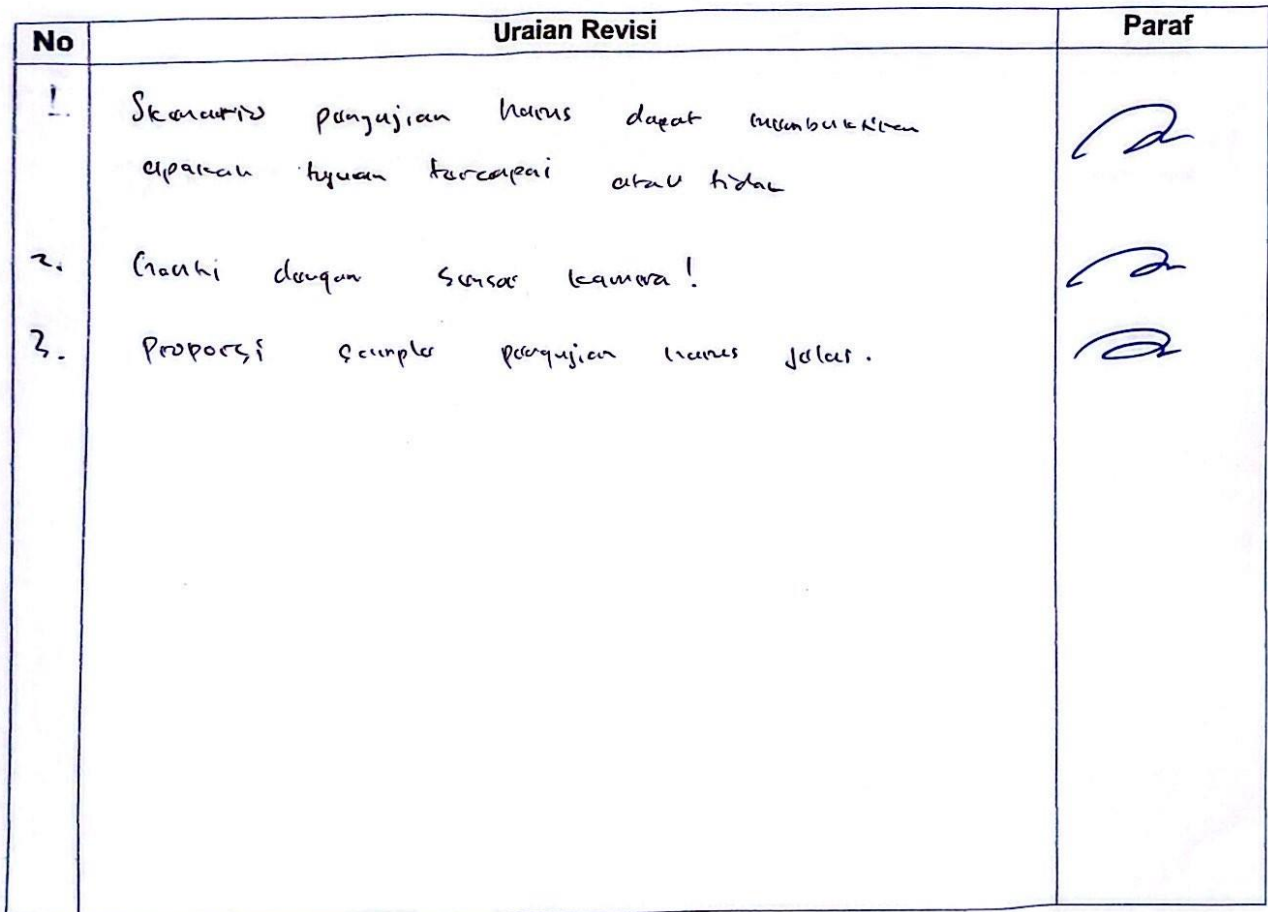 No Uraian Revisi Paraf
1. Skenario pengujian harus dapat membuktikan
apakah tujuan tercapai atau tidak
2. Ganti dengan sensor kamera!
3. Proporsi sampler pengujian harus jelas.